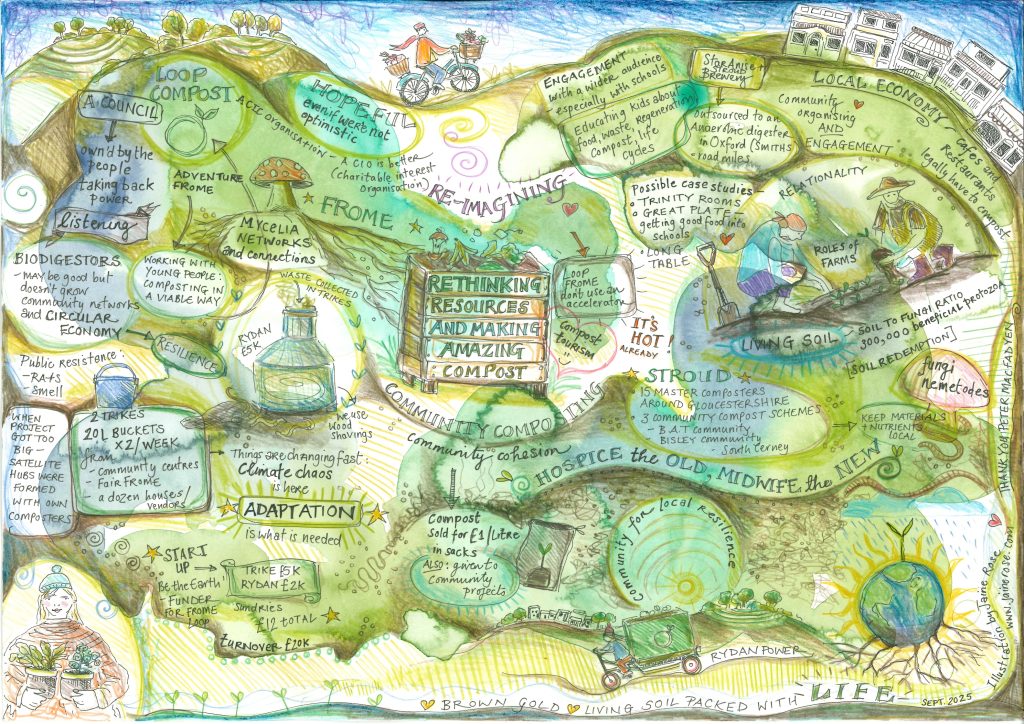 LOOP
COMPOST
A CIC organisation - A CIO is better
(charitable interest
organisation)
HOPEFUL
even if we're not
optimistic
A COUNCIL
own'd by the
people
taking back
power
listening
ADVENTURE
FROME
MYCELIA
NETWORKS
and connections
FROME
RE-IMAGINING
ENGAGEMENT
with a wider audience
especially with schools
Educating kids about
food, waste, Regeneration,
Compost, life
cycles
Stroud
Brewery
outsourced to an
Anaerobic digester
in Oxford (SMITHS
- road miles
LOCAL ECONOMY
- cafes and
Restaurants
legally have to compost
Community
organising
AND
ENGAGEMENT
Possible case studies -
• TRINITY ROOMS
• GREAT PLATE -
getting good food into
schools
• LONG
TABLE
RELATIONALITY
ROLES of
FARMS
BIODIGESTORS
- may be good but
doesn't grow
community networks
and CIRCULAR
ECONOMY
WORKING WITH
YOUNG PEOPLE:
COMPOSTING IN
A VIABLE WAY
RESILIENCE
WASTE COLLECTED
IN TRIKES
RYDAN
£5K
we use
wood
shavings
RETHINKING
RESOURCES
AND MAKING
AMAZING
COMPOST
LOOP
FROME
don't use an
accelerator
"Compost
tourism"
IT'S
HOT!
ALREADY
LIVING SOIL
- SOIL TO FUNGI RATIO
300,000 beneficial protozoa
[SOIL REDEMPTION]
fungi
nemetodes
KEEP MATERIALS
+ NUTRIENTS
LOCAL
Public Resistance:
- RATS
- Smell
2 TRIKES
20L BUCKETS
X2/WEEK
from
- community centres
- FAIR FROME
- a dozen houses/
vendors
WHEN
PROJECT
GOT TOO
BIG -
SATELLITE
HUBS WERE
FORMED
WITH OWN
COMPOSTERS
Things are changing fast:
Climate chaos
is here
ADAPTATION
is what is needed
COMMUNITY COMPOSTING
Community cohesion
STROUD
• 15 MASTER COMPOSTERS
AROUND GLOUCESTERSHIRE
• 3 COMMUNITY COMPOST SCHEMES
- B.A.T community
BISLEY community
South Cerney
HOSPICE the OLD, MIDWIFE the NEW
Compost
Sold for £1/litre
in sacks
ALSO: given to
Community
projects
Community for local resilience
START
UP
Be the Earth
FUNDER
FOR FROME
LOOP
TRIKE £5K
RYDAN £2K
Sundries
£12 TOTAL
turnover £20K
RYDAN POWER
BROWN GOLD LIVING SOIL PACKED WITH
LIFE
SEPT. 2025
Illustration by Jaine Rose
www.jainerose.com
THANK YOU PETER MACFADYEN